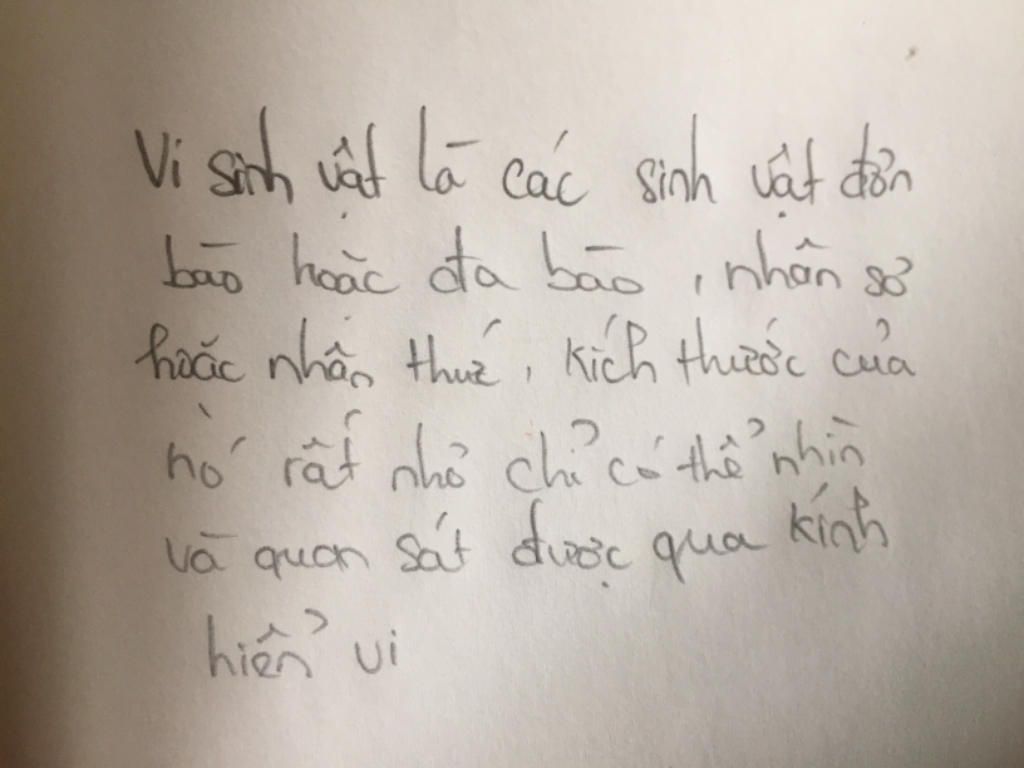 Vi sinh vật là các sinh vật đơn
bào hoặc đa bào, nhân sơ
hoặc nhân thực, kích thước của
nó rất nhỏ chỉ có thể nhìn
và quan sát được qua kính
hiển vi